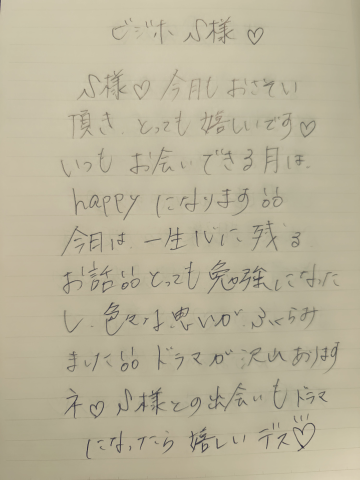 ビジホ S様 ♡
S様♡ 今月もおさそい
頂き、とっても嬉しいです♡
いつも お会いできる月は、
happy になります
今日は、一生心に残る
お話 とっても勉強になった
し、色々な思いが、ふくらみ
ました ドラマが沢山あります
ネ♡ S様との出会いも ドラマ
になったら 嬉しい デス♡